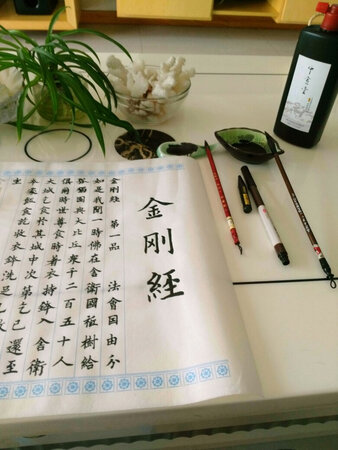 金剛經
金剛經 第一品 法會因由分
如是我聞一時佛在舍衛國祗樹給
孤獨園與大比丘衆千二百五十人
俱爾時世尊食時著衣持鉢入舍衛
大城乞食於其城中次第乞已還至
本處飯食訖收衣鉢洗足已敷